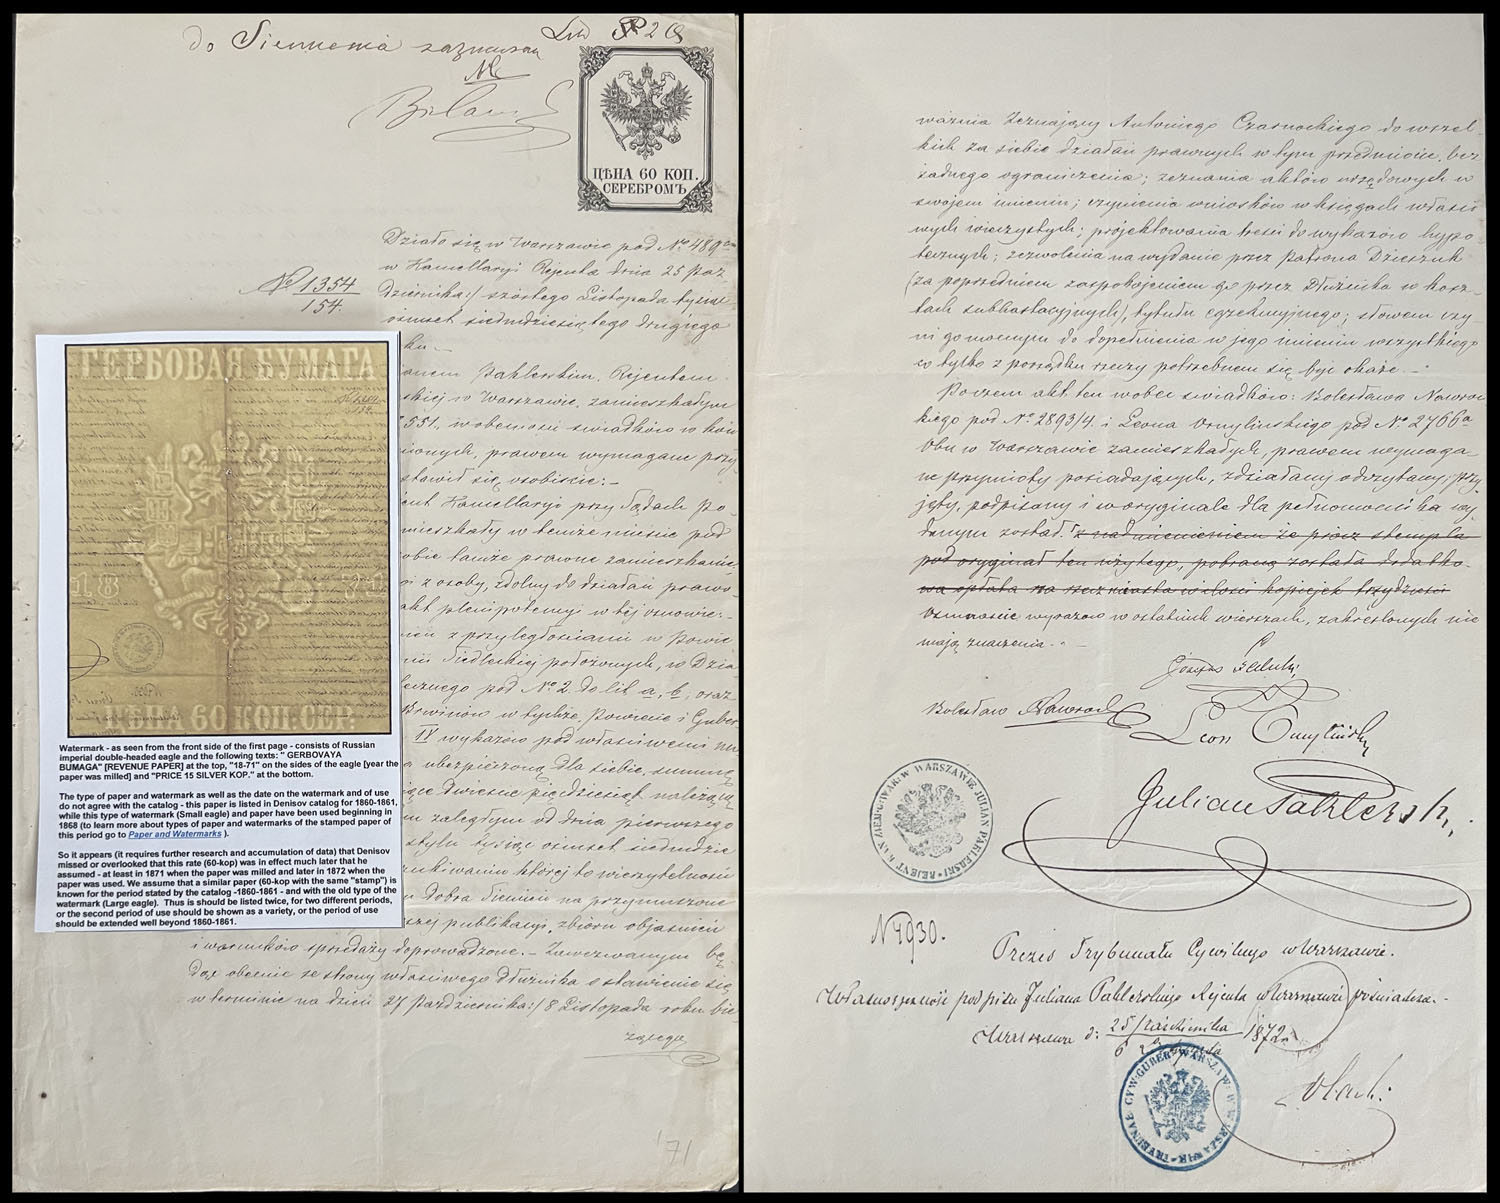 do Siennenia zaznaczam
ЦѢНА 60 КОП.
СЕРЕБРОМЪ
Działo się w Warszawie pod No 489
w Kancellaryi Rejenta dnia 25 Paź
dziernika:/ szóstego Listopada tysiąc
ośmset siedmdziesiątego drugiego
ku.
No 1354
154.
Pahlerskim, Rejentem
skiej w Warszawie, zamieszkałym
551, w obecności świadków w koń
ionych, prawem wymagane przy
stawił się osobiście:-
ent Kancellaryi przy Sądach Po-
mieszkały w temże mieście pod
obie tamże prawne zamieszkanie
i z osoby, zdolny do działań prawn
akt plenipotencyi w tej osnowie:-
z przyległościami w Powie
nii Siedleckiej położonych, w Dzia
cznego pod No 2. do lit a, b, oraz
Borwinów w tychże Powiecie i Guber
IV wykazów pod właściwemi nu
ubezpieczoną dla siebie, summę
dwieście pięćdziesiąt należącą
zaległym od dnia pierwszego
stylu tysiąc ośmset siedmdzie
ukiwaniu której to wierzytelności
Dobra Siennica na przymuszone
szej publikacyi, zbioru objaśnień
i warunków sprzedaży doprowadzone. - Zawezwanym bę-
dąc obecnie ze strony właściwego Dłużnika o stawienie się
w terminie na dzień 27 Października:/ 8 Listopada roku bie
żącego
'71
ГЕРБОВАЯ БУМАГА
18 71
ЦѢНА 60 КОП. СЕР.
Watermark - as seen from the front side of the first page - consists of Russian
imperial double-headed eagle and the following texts: " GERBOVAYA
BUMAGA" [REVENUE PAPER] at the top, "18-71" on the sides of the eagle [year the
paper was milled] and "PRICE 15 SILVER KOP." at the bottom.
The type of paper and watermark as well as the date on the watermark and of use
do not agree with the catalog - this paper is listed in Denisov catalog for 1860-1861,
while this type of watermark (Small eagle) and paper have been used beginning in
1868 (to learn more about types of paper and watermarks of the stamped paper of
this period go to Paper and Watermarks ).
So it appears (it requires further research and accumulation of data) that Denisov
missed or overlooked that this rate (60-kop) was in effect much later that he
assumed - at least in 1871 when the paper was milled and later in 1872 when the
paper was used. We assume that a similar paper (60-kop with the same "stamp") is
known for the period stated by the catalog -1860-1861 - and with the old type of the
watermark (Large eagle). Thus is should be listed twice, for two different periods,
or the second period of use should be shown as a variety, or the period of use
should be extended well beyond 1860-1861.
ważnia zeznający Antoniego Czarnockiego do wszel-
kich za siebie działań prawnych w tym przedmiocie, bez
żadnego ograniczenia; zeznania aktów urzędowych w
swojem imieniu; czynienia wniosków w księgach właści
wych wieczystych; projektowania treści do wykazów hypo
tecznych; zezwolenia na wydanie przez Patrona Dzierzuk
(za poprzedniem zaspokojeniem go przez Dłużnika w kosz-
tach subhastacyjnych), tytułu egzekucyjnego; słowem czy-
ni go mocnym do dopełnienia w jego imieniu wszystkiego
co tylko z porządku rzeczy potrzebnem się być okaże. -
Poczem akt ten wobec świadków: Bolesława Nawroc
kiego pod No 2893/4 i Leona Omylińskiego pod No 2766a
Obu w Warszawie zamieszkałych, prawem wymaga-
ne przymioty posiadających, zdziałany odczytany, przy
jęty, podpisany i w oryginale dla pełnomocnika wy-
danym został. z nadmienieniem że prócz stempla
pod oryginał ten użytego, pobraną została dodatko-
wa opłata na rzecz miasta w ilości kopiejek trzydzieści
Osmnaście wyrazów w ostatnich wierszach, zakreślonych nie
mają znaczenia. -
Bolesław Nawrocki
Leon Omyliński
Julian Pahlerski
REJENT KAN. ZIEM. GUB. WAR. W WARSZAWIE JULIAN PAHLERSKI
N 4930.
Prezes Trybunału Cywilnego w Warszawie.
Własnoręczność podpisu Juliana Pahlerskiego Rejenta w Warszawie poświadcza. -
Warszawa d: 25 Października / 6 Listopada 1872.
TRYBUNAŁ CYW: GUBER: WARSZAW: W WARSZAWIE